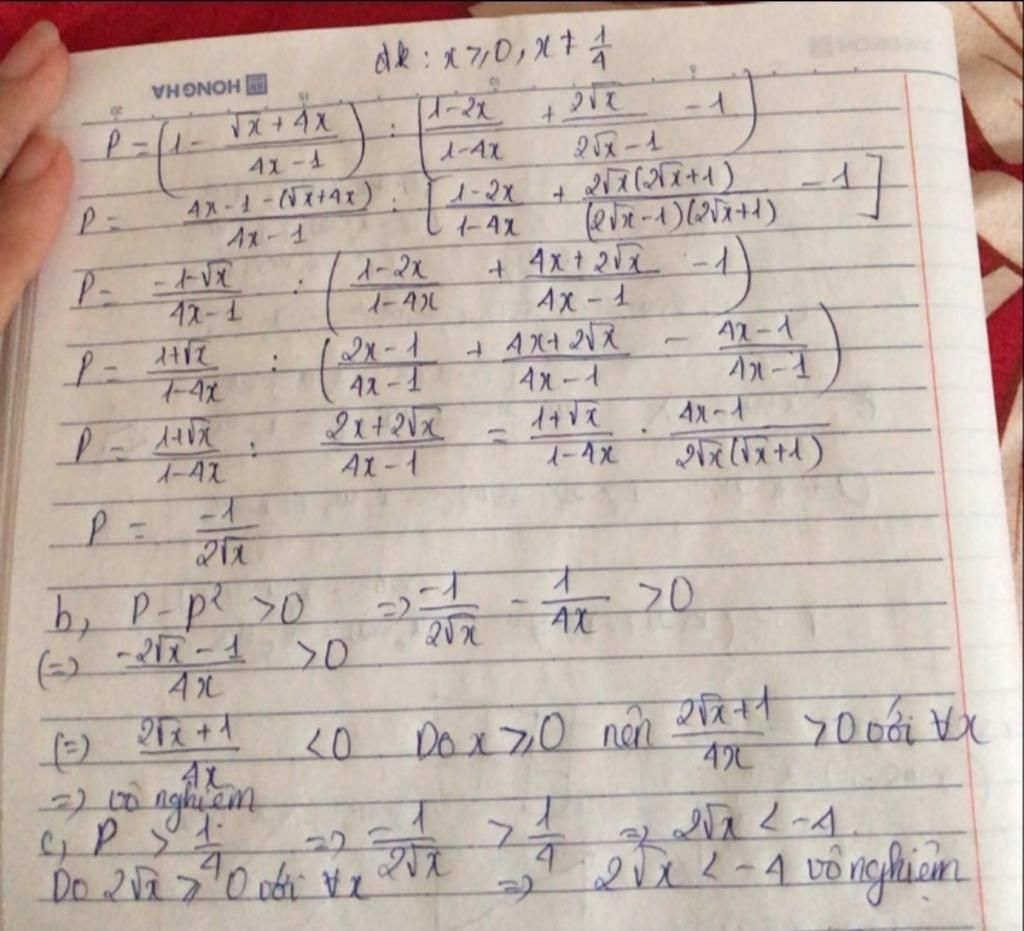 đk : x ≥ 0, x ≠ 1/4
HONG HA
P = (1 - (√x + 4x)/(4x - 1)) : ((1 - 2x)/(1 - 4x) + 2√x/(2√x - 1) - 1)
P = (4x - 1 - (√x + 4x))/(4x - 1) : [(1 - 2x)/(1 - 4x) + 2√x(2√x + 1)/((2√x - 1)(2√x + 1)) - 1]
P = (-1 - √x)/(4x - 1) : ((1 - 2x)/(1 - 4x) + (4x + 2√x)/(4x - 1) - 1)
P = (1 + √x)/(1 - 4x) : ((2x - 1)/(4x - 1) + (4x + 2√x)/(4x - 1) - (4x - 1)/(4x - 1))
P = (1 + √x)/(1 - 4x) : (2x + 2√x)/(4x - 1) = (1 + √x)/(1 - 4x) . (4x - 1)/(2√x(√x + 1))
P = -1/(2√x)
b, P - P² > 0 => -1/(2√x) - 1/(4x) > 0
(=) (-2√x - 1)/(4x) > 0
(=) (2√x + 1)/(4x) < 0 Do x ≥ 0 nên (2√x + 1)/(4x) > 0 với ∀x
=> vô nghiệm
c, P > 1/4 => -1/(2√x) > 1/4 => 2√x < -4
Do 2√x ≥ 0 với ∀x => 2√x < -4 vô nghiệm